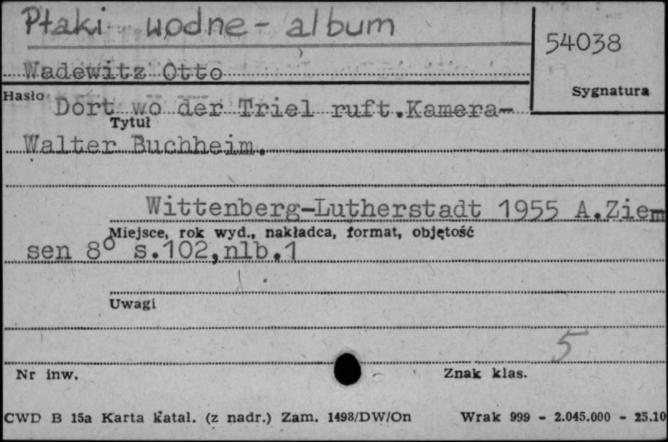 Ptaki wodne - album
54038
Wadewitz Otto
Hasło
Sygnatura
Dort wo der Triel ruft.Kamera-
Tytuł
Walter Buchheim.
Wittenberg-Lutherstadt 1955 A.Ziem
Miejsce, rok wyd., nakładca, format, objętość
sen 8° s.102,nlb.1
Uwagi
5
Nr inw.
Znak klas.
CWD B 15a Karta katal. (z nadr.) Zam. 1498/DW/On Wrak 999 - 2.045.000 - 25.10